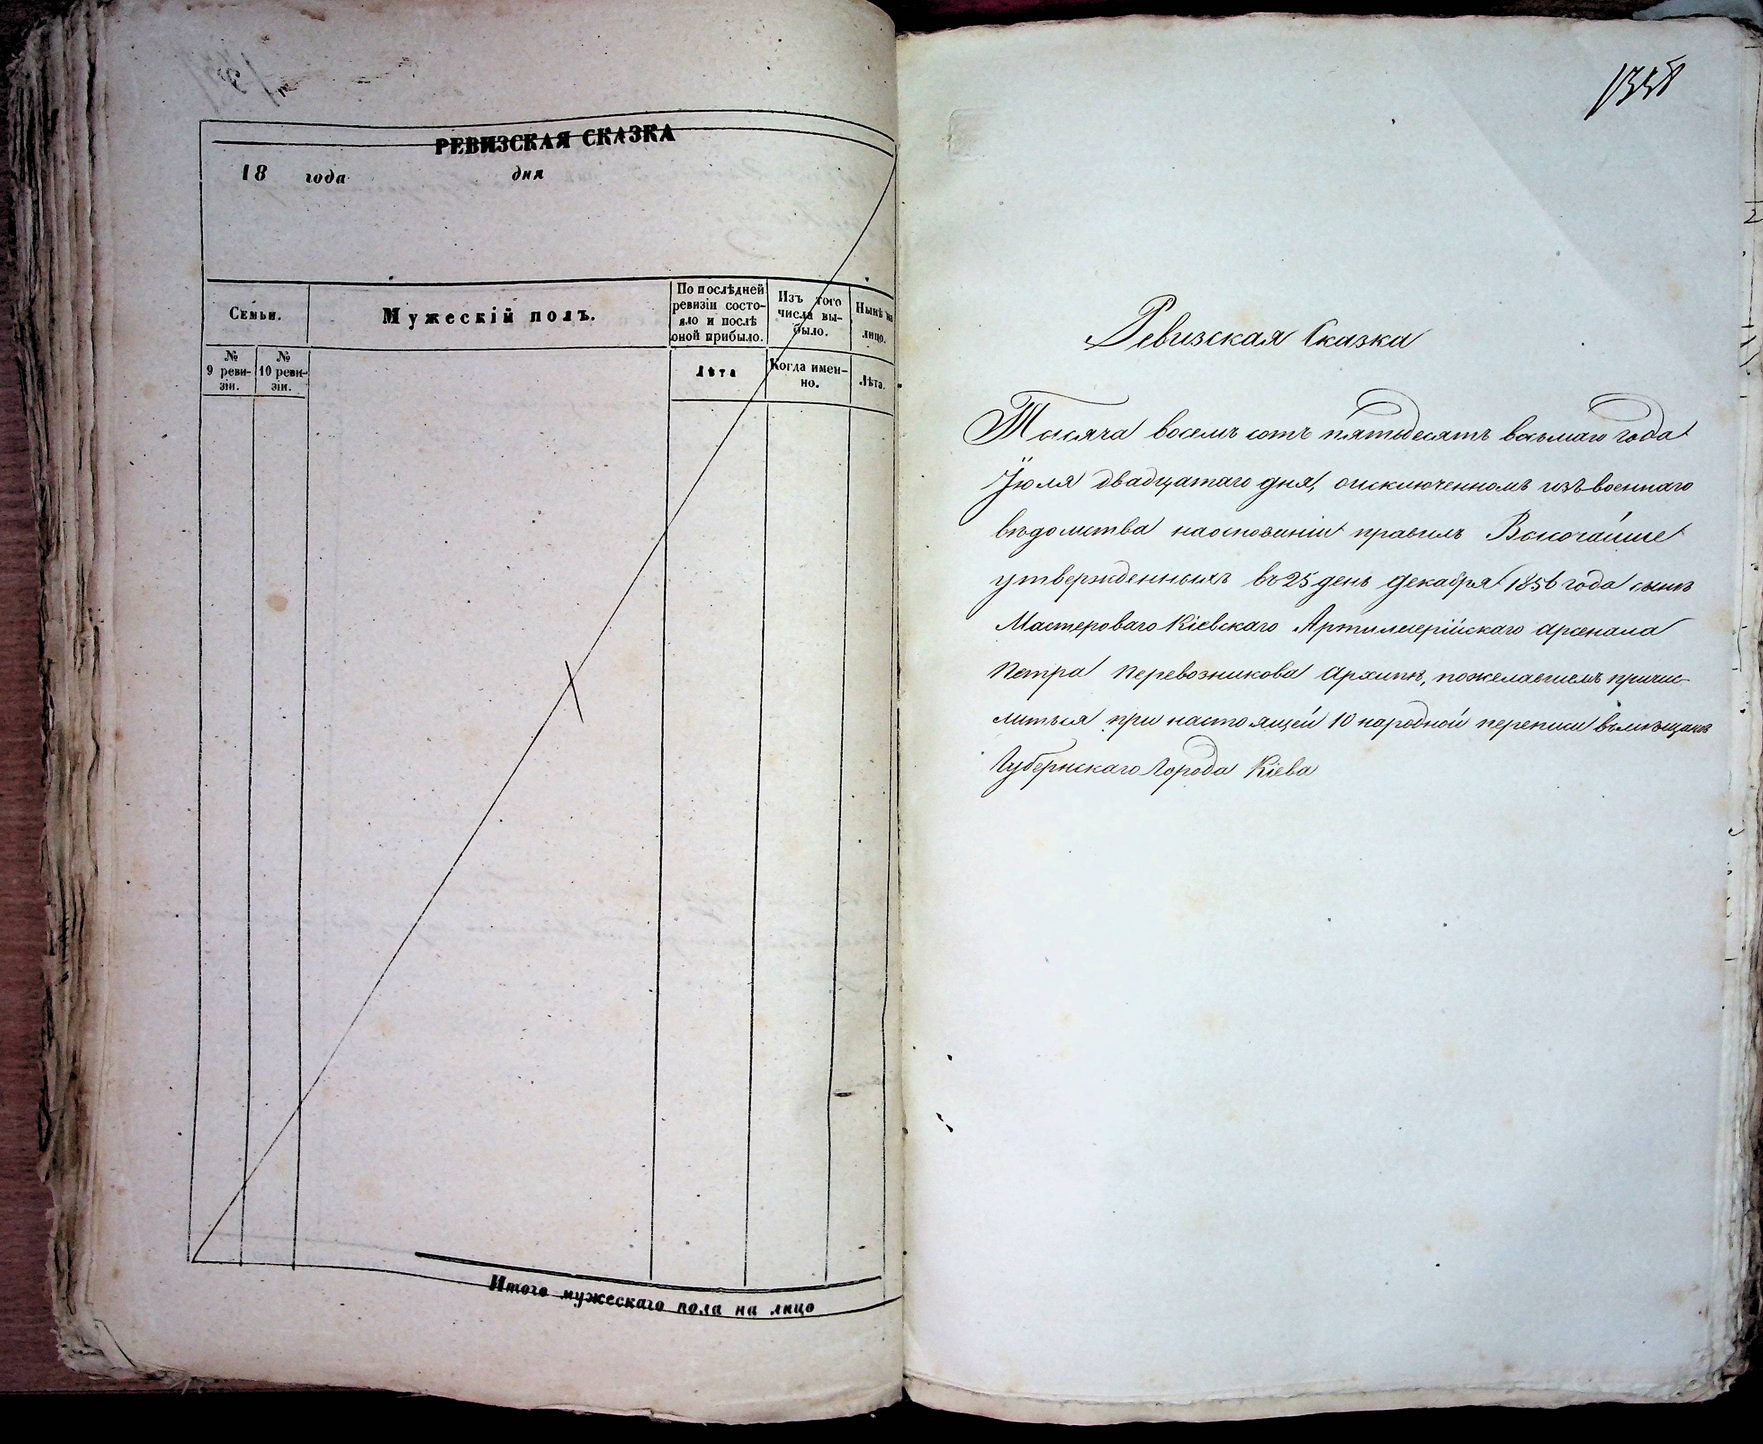 РЕВИЗСКАЯ СКАЗКА
18 года дня
Семьи.
Мужескій полъ.
По послѣдней
ревизіи состо-
яло и послѣ
оной прибыло.
Изъ того
числа вы-
было.
Нынѣ на
лицо.
№
9 реви-
зіи.
№
10 реви-
зіи.
Лѣта
Когда имен-
но.
Лѣта.
Итого мужескаго пола на лицо
Ревизская Сказка
Тысяча восемъ сотъ пятьдесятъ восьмаго года
Іюля двадцатаго дня, о исключенномъ изъ военнаго
вѣдомства на основаніи правилъ Высочайше
утвержденныхъ въ 25 день декабря 1856 года сынѣ
Мастероваго Кіевскаго Артиллерійскаго арсенала
Петра Перевозникова Архипѣ, пожелавшемъ причис-
литься при настоящей 10 народной переписи въ мѣщане
Губернскаго Города Кіева